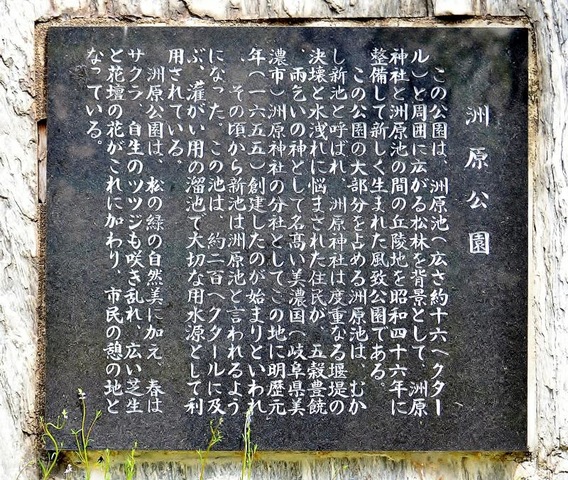 洲原公園
この公園は、洲原池(広さ約十六ヘクター
ル)と周囲に広がる松林を背景として、洲原
神社と洲原池の間の丘陵地を昭和四十六年に
整備して新しく生まれた風致公園である。
この公園の大部分を占める洲原池は、むか
し新池と呼ばれ、洲原神社は度重なる堰堤の
決壊と水洩れに悩まされた住民が、五穀豊饒
、雨乞いの神として名高い美濃国(岐阜県美
濃市)洲原神社の分社としてこの地に明歴元
年(一六五五)創建したのが始まりといわれ
、その頃から新池は洲原池と言われるよう
になった。この池は、約二百ヘクタールに及
ぶ、灌がい用の溜池で大切な用水源として利
用されている。
洲原公園は、松の緑の自然美に加え、春は
サクラ、自生のツツジも咲き乱れ、広い芝生
と花壇の花がこれに加わり、市民の憩の地と
なっている。